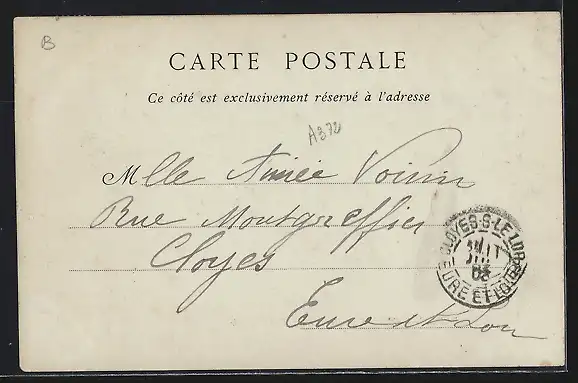 B
CARTE POSTALE
Ce côté est exclusivement réservé à l'adresse
A372
Mlle Aimée Voisin
Rue Montgreffier
Cloyes
Eure et Loir
CLOYES-S-LE-LOIR
03
EURE ET LOIR